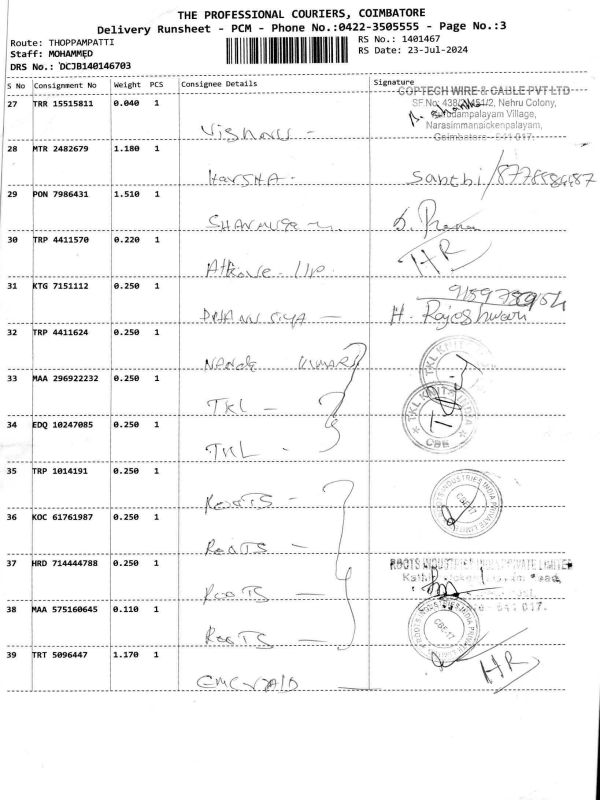 THE PROFESSIONAL COURIERS, COIMBATORE
Delivery Runsheet - PCM - Phone No.:0422-3505555 - Page No.:3
Route: THOPPAMPATTI
Staff: MOHAMMED
DRS No.: DCJB140146703
RS No.: 1401467
RS Date: 23-Jul-2024
S No Consignment No Weight PCS Consignee Details Signature
27 TRR 15515811 0.040 1
COPTECH WIRE & CABLE PVT LTD
Nehru Colony,
Narasimmanaickenpalayam,
28 MTR 2482679 1.180 1
Harsha - Santhi
29 PON 7986431 1.510 1
30 TRP 4411570 0.220 1
HR
31 KTG 7151112 0.250 1
H. Rajeshwari
32 TRP 4411624 0.250 1
KUMAR
33 MAA 296922232 0.250 1
TKL -
34 EDQ 10247085 0.250 1
TKL -
TKL KNITS INDIA
CBE
35 TRP 1014191 0.250 1
ROOTS -
ROOTS INDUSTRIES INDIA PRIVATE LIMITED
CBE-17
36 KOC 61761987 0.250 1
ROOTS -
37 HRD 714444788 0.250 1
ROOTS INDUSTRIES INDIA PRIVATE LIMITED
ROOTS -
38 MAA 575160645 0.110 1
ROOTS -
ROOTS INDUSTRIES INDIA PRIVATE
CBE-17
39 TRT 5096447 1.170 1
HR